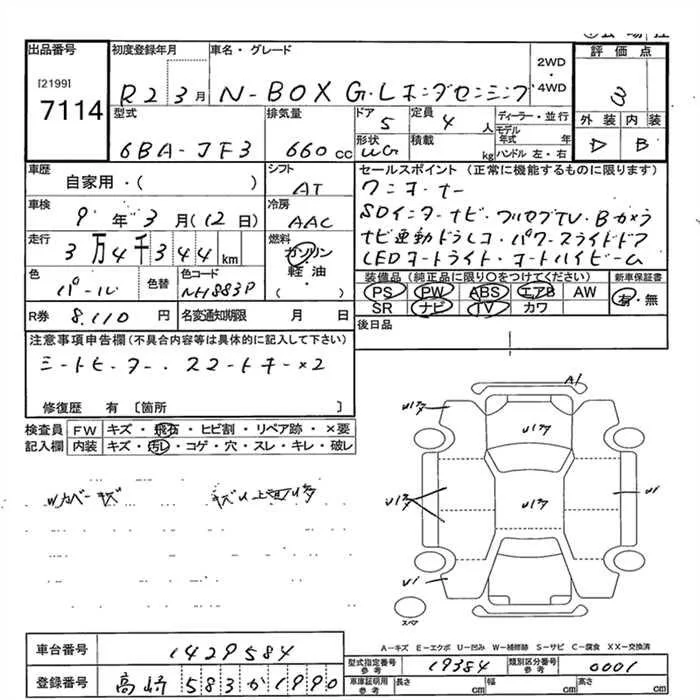 出品番号
[2199]
7114
初度登録年月
R2 3月
車名・グレード
N-BOX G・Lホンダセンシング
2WD・4WD
評価点
3
型式
6BA-JF3
排気量
660cc
ドア
5
定員
4人
形状
UG
積載
kg
ディーラー・並行
モデル年式 年
ハンドル 左・右
外装 内装
D B
車歴
自家用・( )
シフト
AT
車検
9年3月(12日)
冷房
AAC
走行
3万4千344km
燃料
ガソリン
軽油・
( )
色
パール
色替
色コード
NH883P
R券 8,110円
名変通知期限 月 日
セールスポイント(正常に機能するものに限ります)
ワンオーナー
SDインターナビ・フルセグTV・Bカメラ
ナビ連動ドラレコ・パワースライドドア
LEDオートライト・オートハイビーム
装備品(純正品に限り○をつけてください)
PS PW ABS エアB AW
SR ナビ TV カワ
新車保証書
有・無
後日品
注意事項申告欄(不具合内容等は具体的に記入して下さい)
シートヒーター、スマートキー×2
修復歴 有〔箇所 〕
検査員記入欄
FW キズ・飛石・ヒビ割・リペア跡・×要
内装 キズ・汚レ・コゲ・穴・スレ・キレ・破レ
Wカバーキズ
A1
U1
U1
スペア
A-キズ E-エクボ U-凹み W-補修跡 S-サビ C-腐食 XX-交換済
車台番号
1429584
登録番号
高崎 583 か 1990
型式指定番号 参考
19384
類別区分番号 参考
0001
車庫証明用 参考
長さ cm 幅 cm 高さ cm